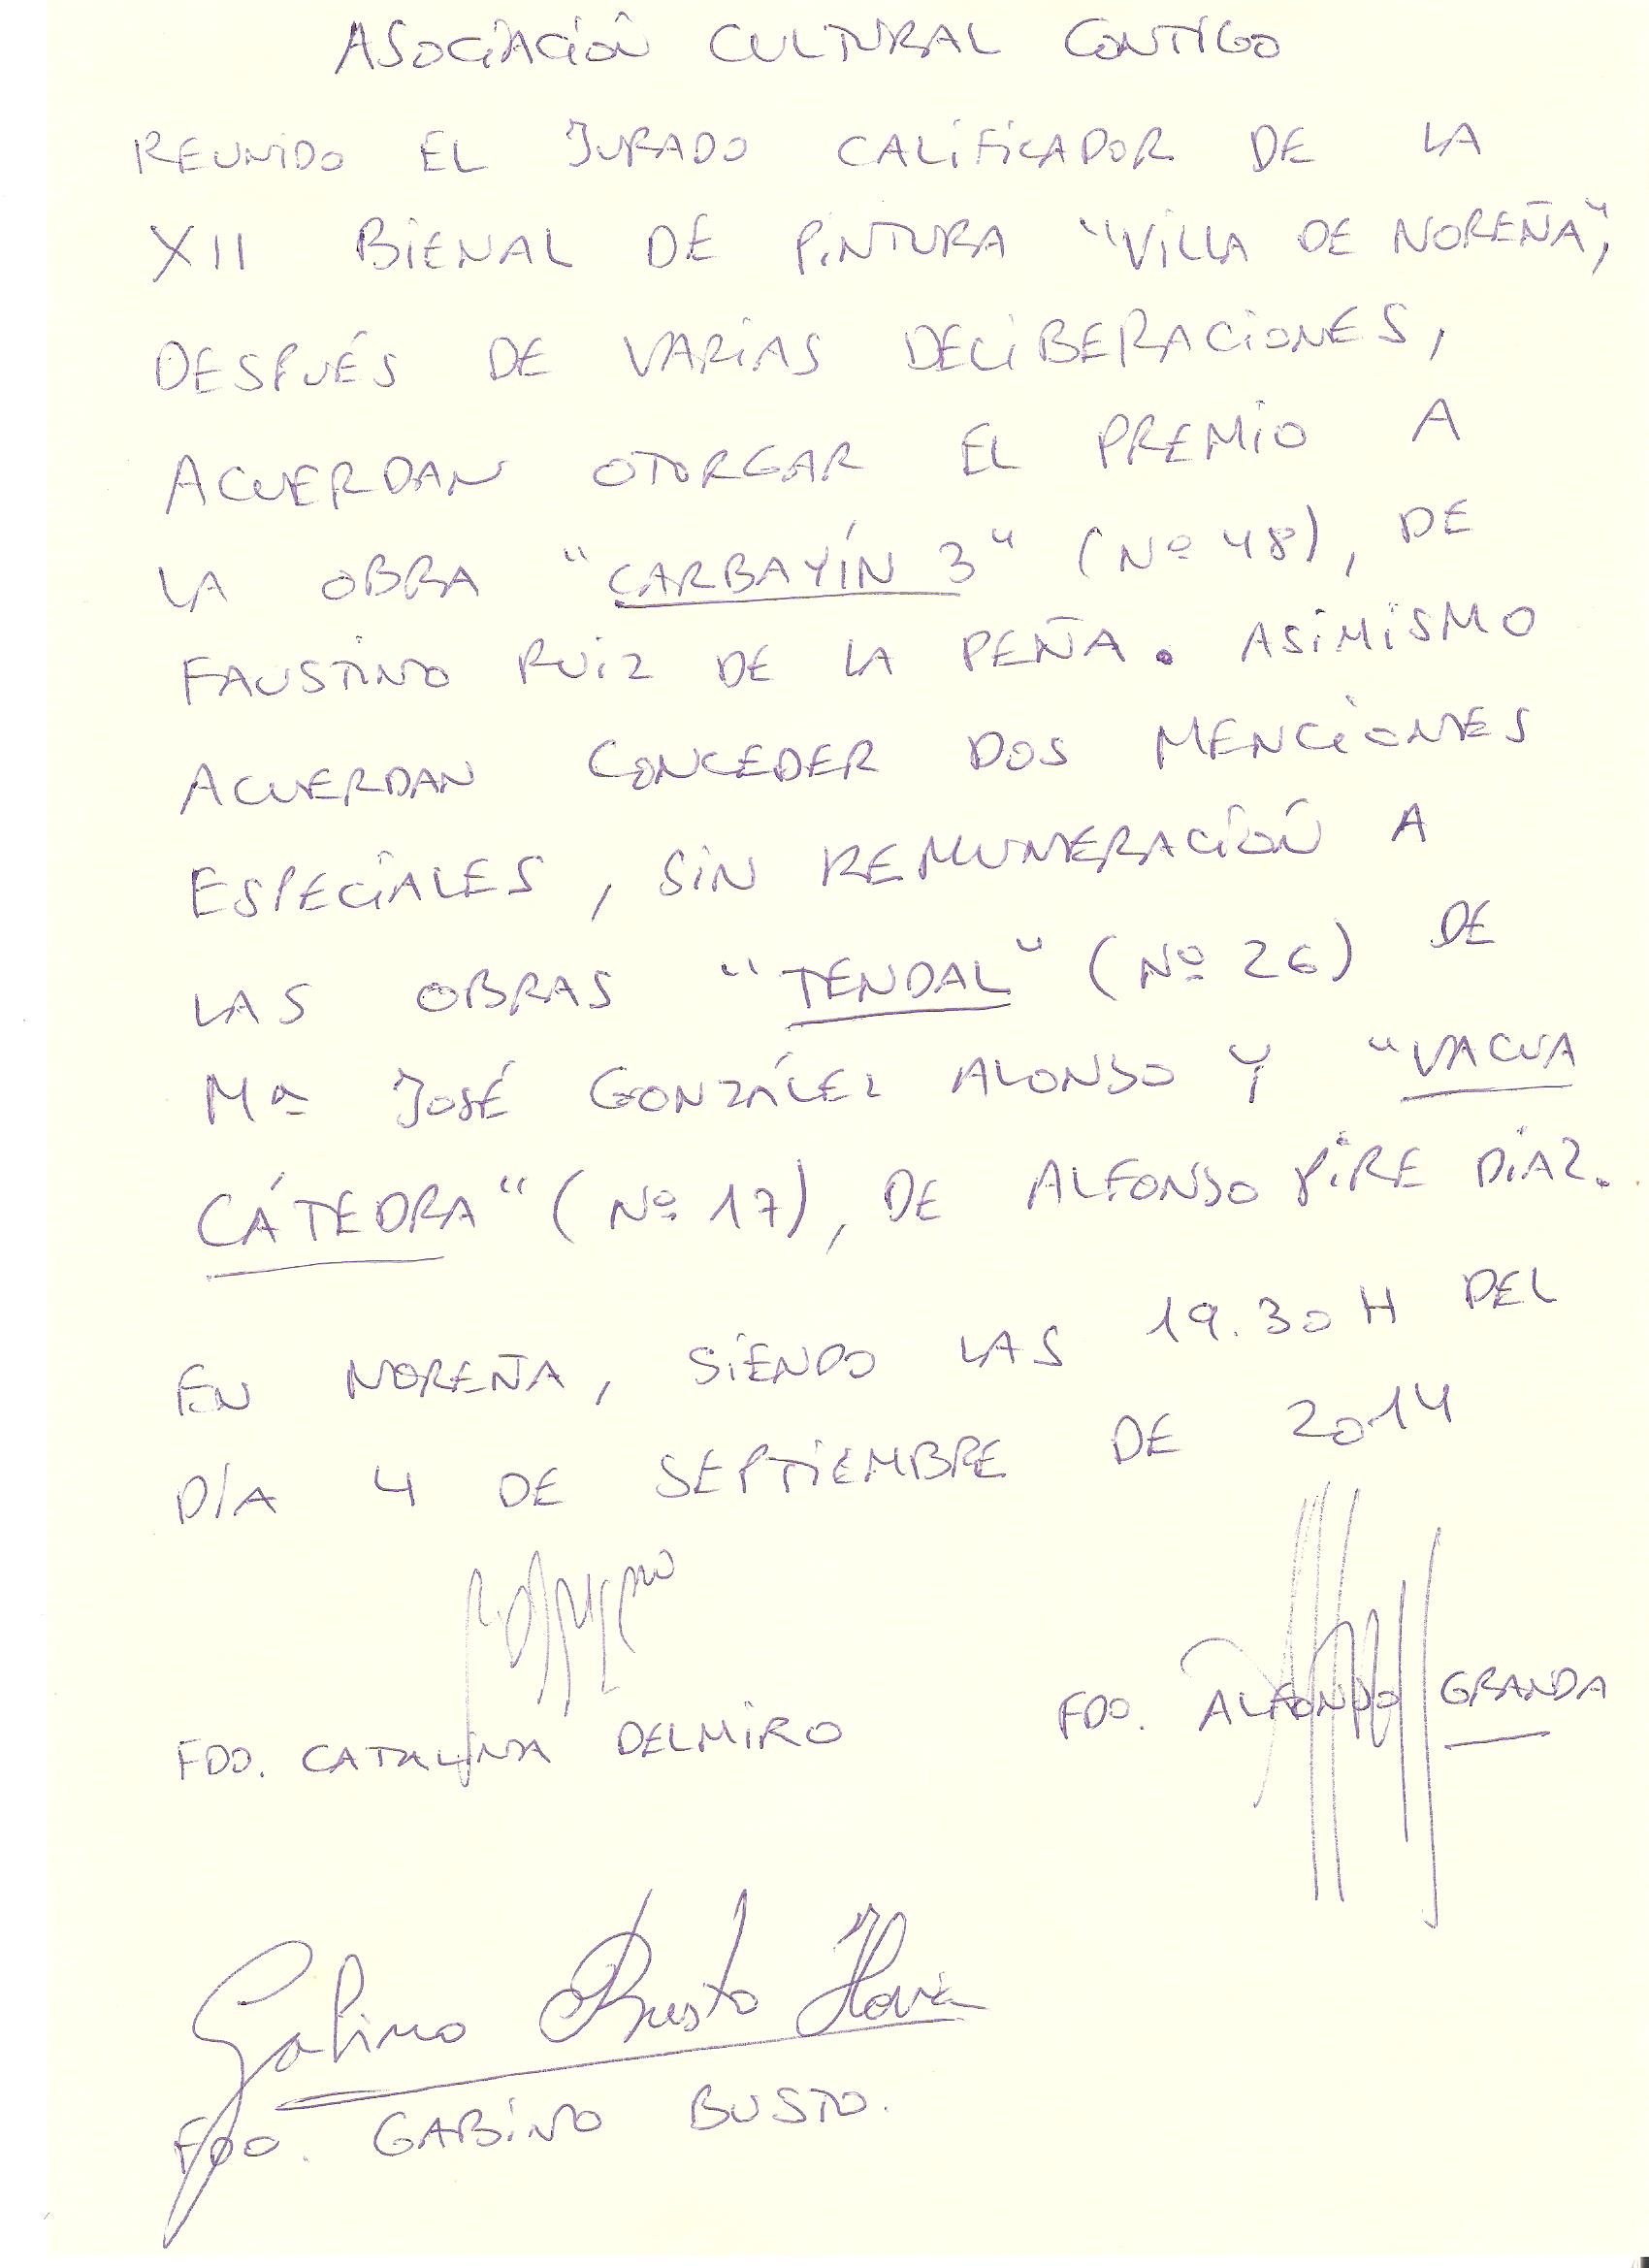 ASOCIACIÓN CULTURAL CONTIGO
REUNIDO EL JURADO CALIFICADOR DE LA
XII BIENAL DE PINTURA "VILLA DE NOREÑA",
DESPUÉS DE VARIAS DELIBERACIONES,
ACUERDAN OTORGAR EL PREMIO A
LA OBRA "CARBAYÍN 3" (Nº 48), DE
FAUSTINO RUIZ DE LA PEÑA. ASIMISMO
ACUERDAN CONCEDER DOS MENCIONES
ESPECIALES, SIN REMUNERACIÓN A
LAS OBRAS "TENDAL" (Nº 26) DE
Mª JOSÉ GONZÁLEZ ALONSO Y "VACUA
CÁTEDRA" (Nº 17), DE ALFONSO PIRE DÍAZ.
EN NOREÑA, SIENDO LAS 19.30 H DEL
DÍA 4 DE SEPTIEMBRE DE 2014
FDO. CATALINA DELMIRO FDO. ALFONSO GRANDA
Gabino Busto
FDO. GABINO BUSTO.